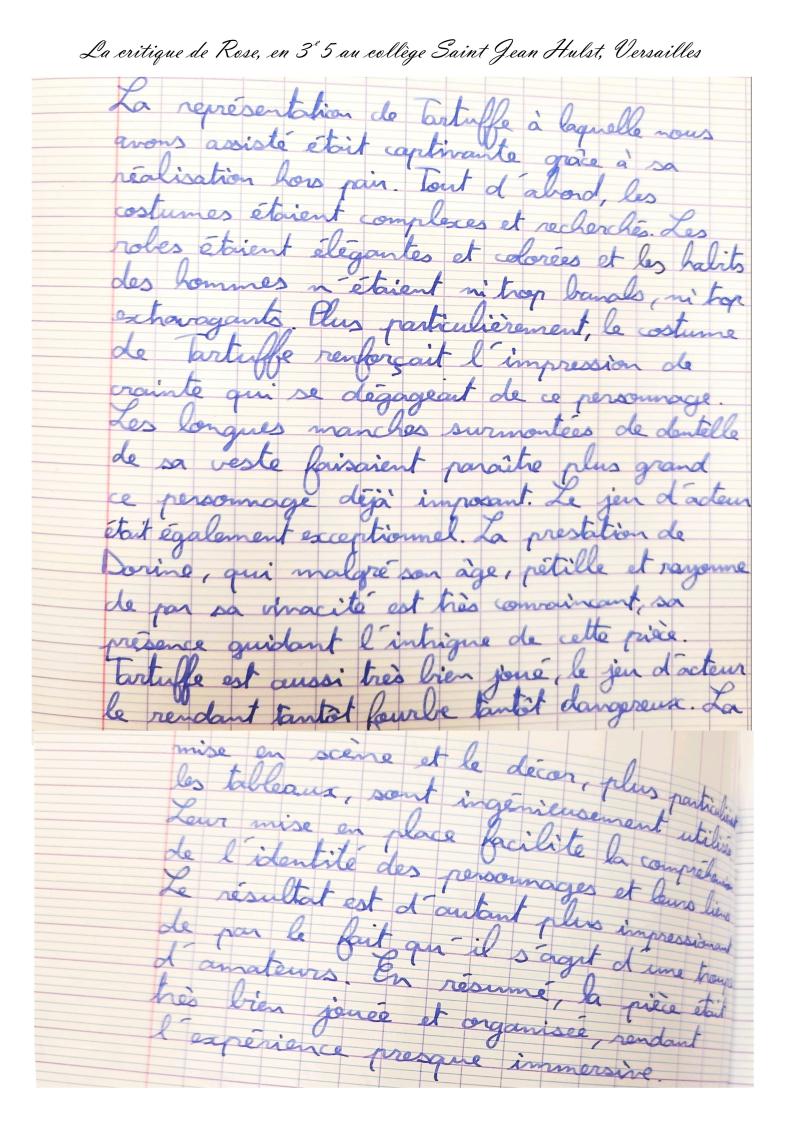 La critique de Rose, en 3e 5 au collège Saint Jean Hulst, Versailles
La représentation de Tartuffe à laquelle nous
avons assisté était captivante grâce à sa
réalisation hors pair. Tout d'abord, les
costumes étaient complexes et recherchés. Les
robes étaient élégantes et colorées et les habits
des hommes n'étaient ni trop banals, ni trop
extravagants. Plus particulièrement, le costume
de Tartuffe renforçait l'impression de
crainte qui se dégageait de ce personnage.
Les longues manches surmontées de dentelle
de sa veste faisaient paraître plus grand
ce personnage déjà imposant. Le jeu d'acteur
était également exceptionnel. La prestation de
Dorine, qui malgré son âge, pétille et rayonne
de par sa vivacité est très convaincant, sa
présence guidant l'intrigue de cette pièce.
Tartuffe est aussi très bien joué, le jeu d'acteur
le rendant tantôt fourbe tantôt dangereux. La
mise en scène et le décor, plus
les tableaux, sont ingénieusement
Leur mise en place facilite la
de l'identité des personnages et leurs liens
Le résultat est d'autant plus impressionnant
de par le fait qu'il s'agit d'une troupe
d'amateurs. En résumé, la pièce était
très bien jouée et organisée, rendant
l'expérience presque immersive.